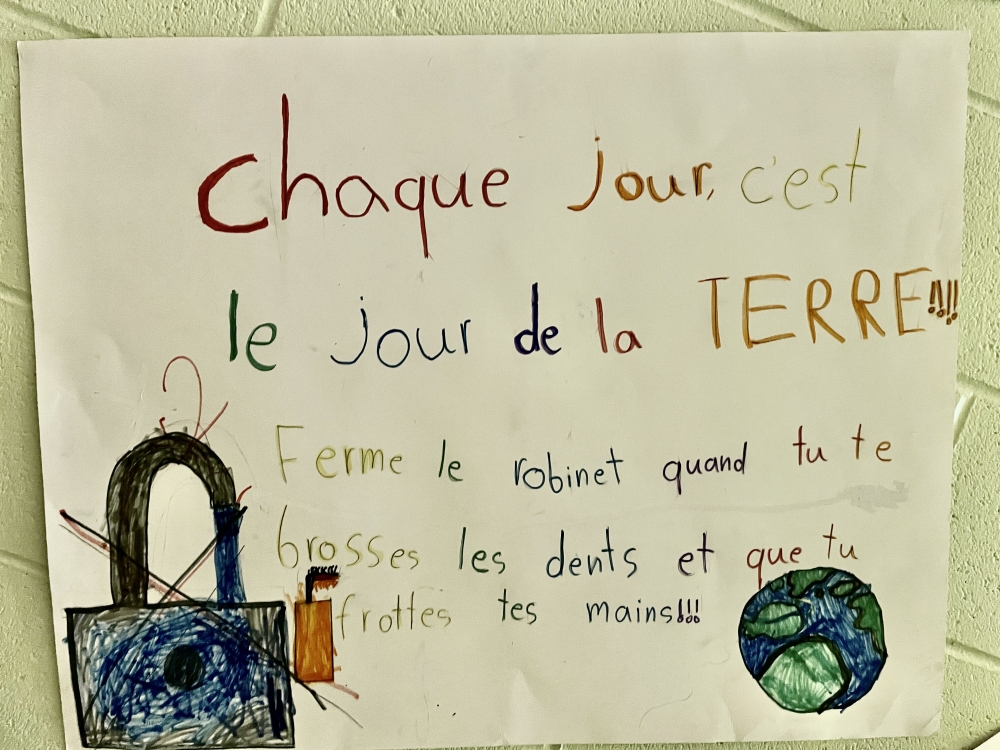 Chaque jour, c'est
le jour de la TERRE!!!
Ferme le robinet quand tu te
brosses les dents et que tu
frottes tes mains!!!